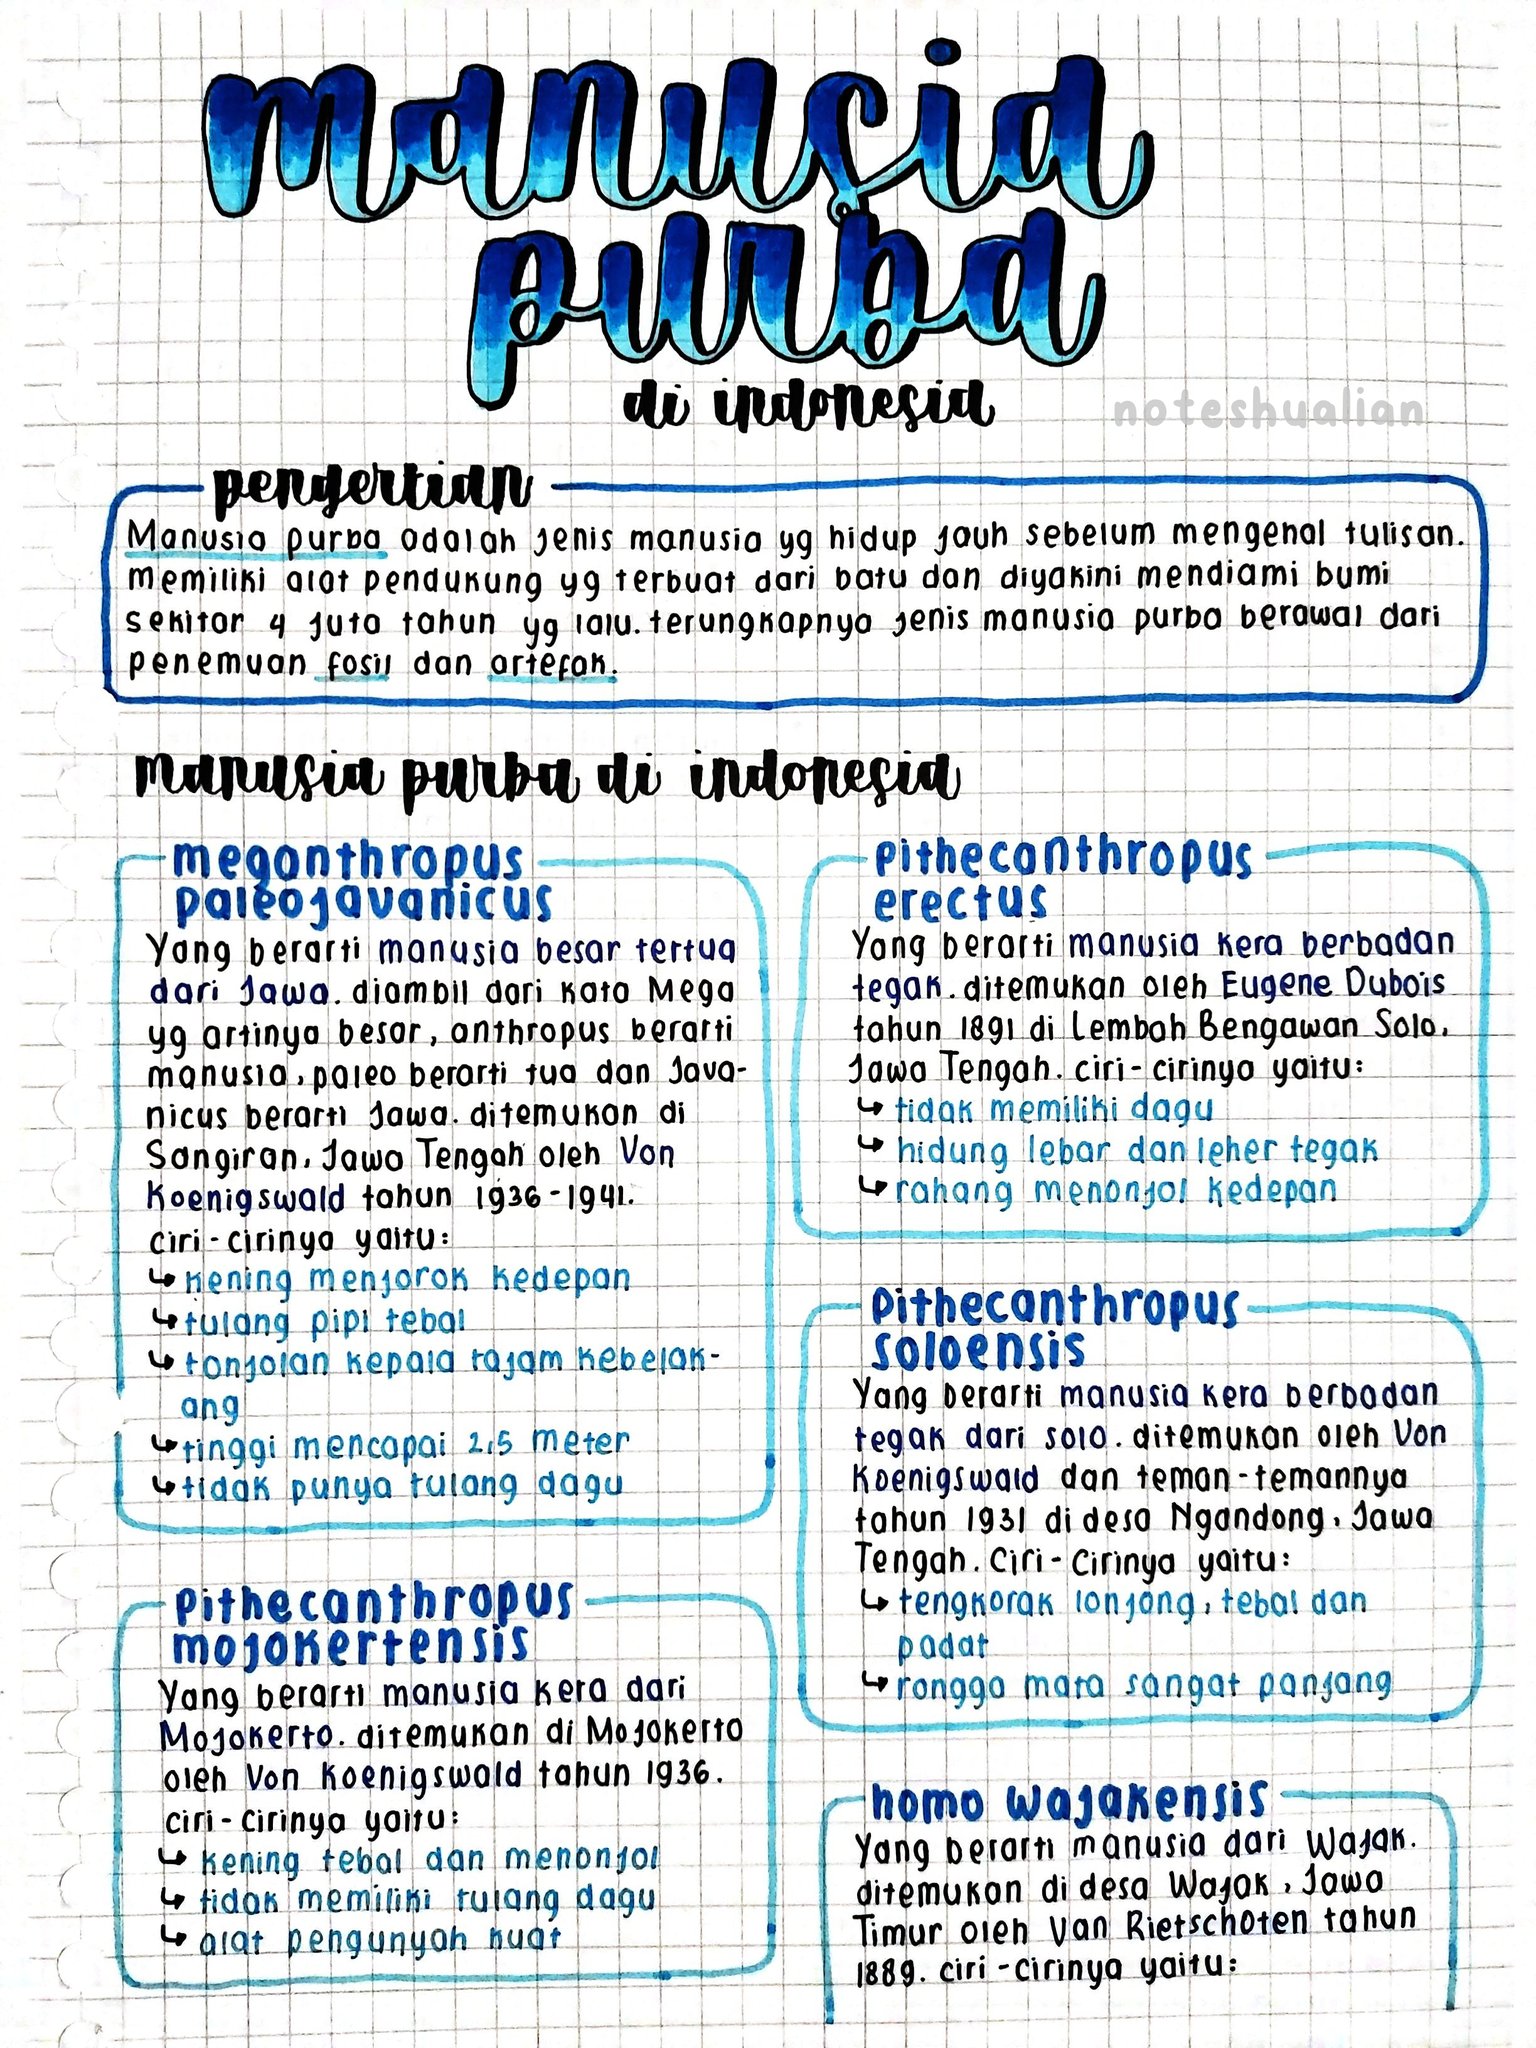 manusia
purba
di indonesia
noteshualian
pengertian
Manusia purba adalah jenis manusia yg hidup jauh sebelum mengenal tulisan.
memiliki alat pendukung yg terbuat dari batu dan diyakini mendiami bumi
sekitar 4 juta tahun yg lalu. terungkapnya jenis manusia purba berawal dari
penemuan fosil dan artefak.
manusia purba di indonesia
meganthropus
paleojavanicus
Yang berarti manusia besar tertua
dari Jawa. diambil dari kata Mega
yg artinya besar, anthropus berarti
manusia, paleo berarti tua dan Java-
nicus berarti Jawa. ditemukan di
Sangiran, Jawa Tengah oleh Von
Koenigswald tahun 1936-1941.
ciri-cirinya yaitu:
↳ kening menjorok kedepan
↳ tulang pipi tebal
↳ tonjolan kepala tajam kebelak-
ang
↳ tinggi mencapai 2,5 meter
↳ tidak punya tulang dagu
pithecanthropus
mojokertensis
Yang berarti manusia kera dari
Mojokerto. ditemukan di Mojokerto
oleh Von Koenigswald tahun 1936.
ciri-cirinya yaitu:
↳ kening tebal dan menonjol
↳ tidak memiliki tulang dagu
↳ alat pengunyah kuat
pithecanthropus
erectus
Yang berarti manusia kera berbadan
tegak. ditemukan oleh Eugene Dubois
tahun 1891 di Lembah Bengawan Solo,
Jawa Tengah. ciri-cirinya yaitu:
↳ tidak memiliki dagu
↳ hidung lebar dan leher tegak
↳ rahang menonjol kedepan
pithecanthropus
soloensis
Yang berarti manusia kera berbadan
tegak dari solo. ditemukan oleh Von
Koenigswald dan teman-temannya
tahun 1931 di desa Ngandong, Jawa
Tengah. Ciri-Cirinya yaitu:
↳ tengkorak lonjong, tebal dan
padat
↳ rongga mata sangat panjang
homo wajakensis
Yang berarti manusia dari Wajak.
ditemukan di desa Wajak, Jawa
Timur oleh Van Rietschoten tahun
1889. ciri-cirinya yaitu: